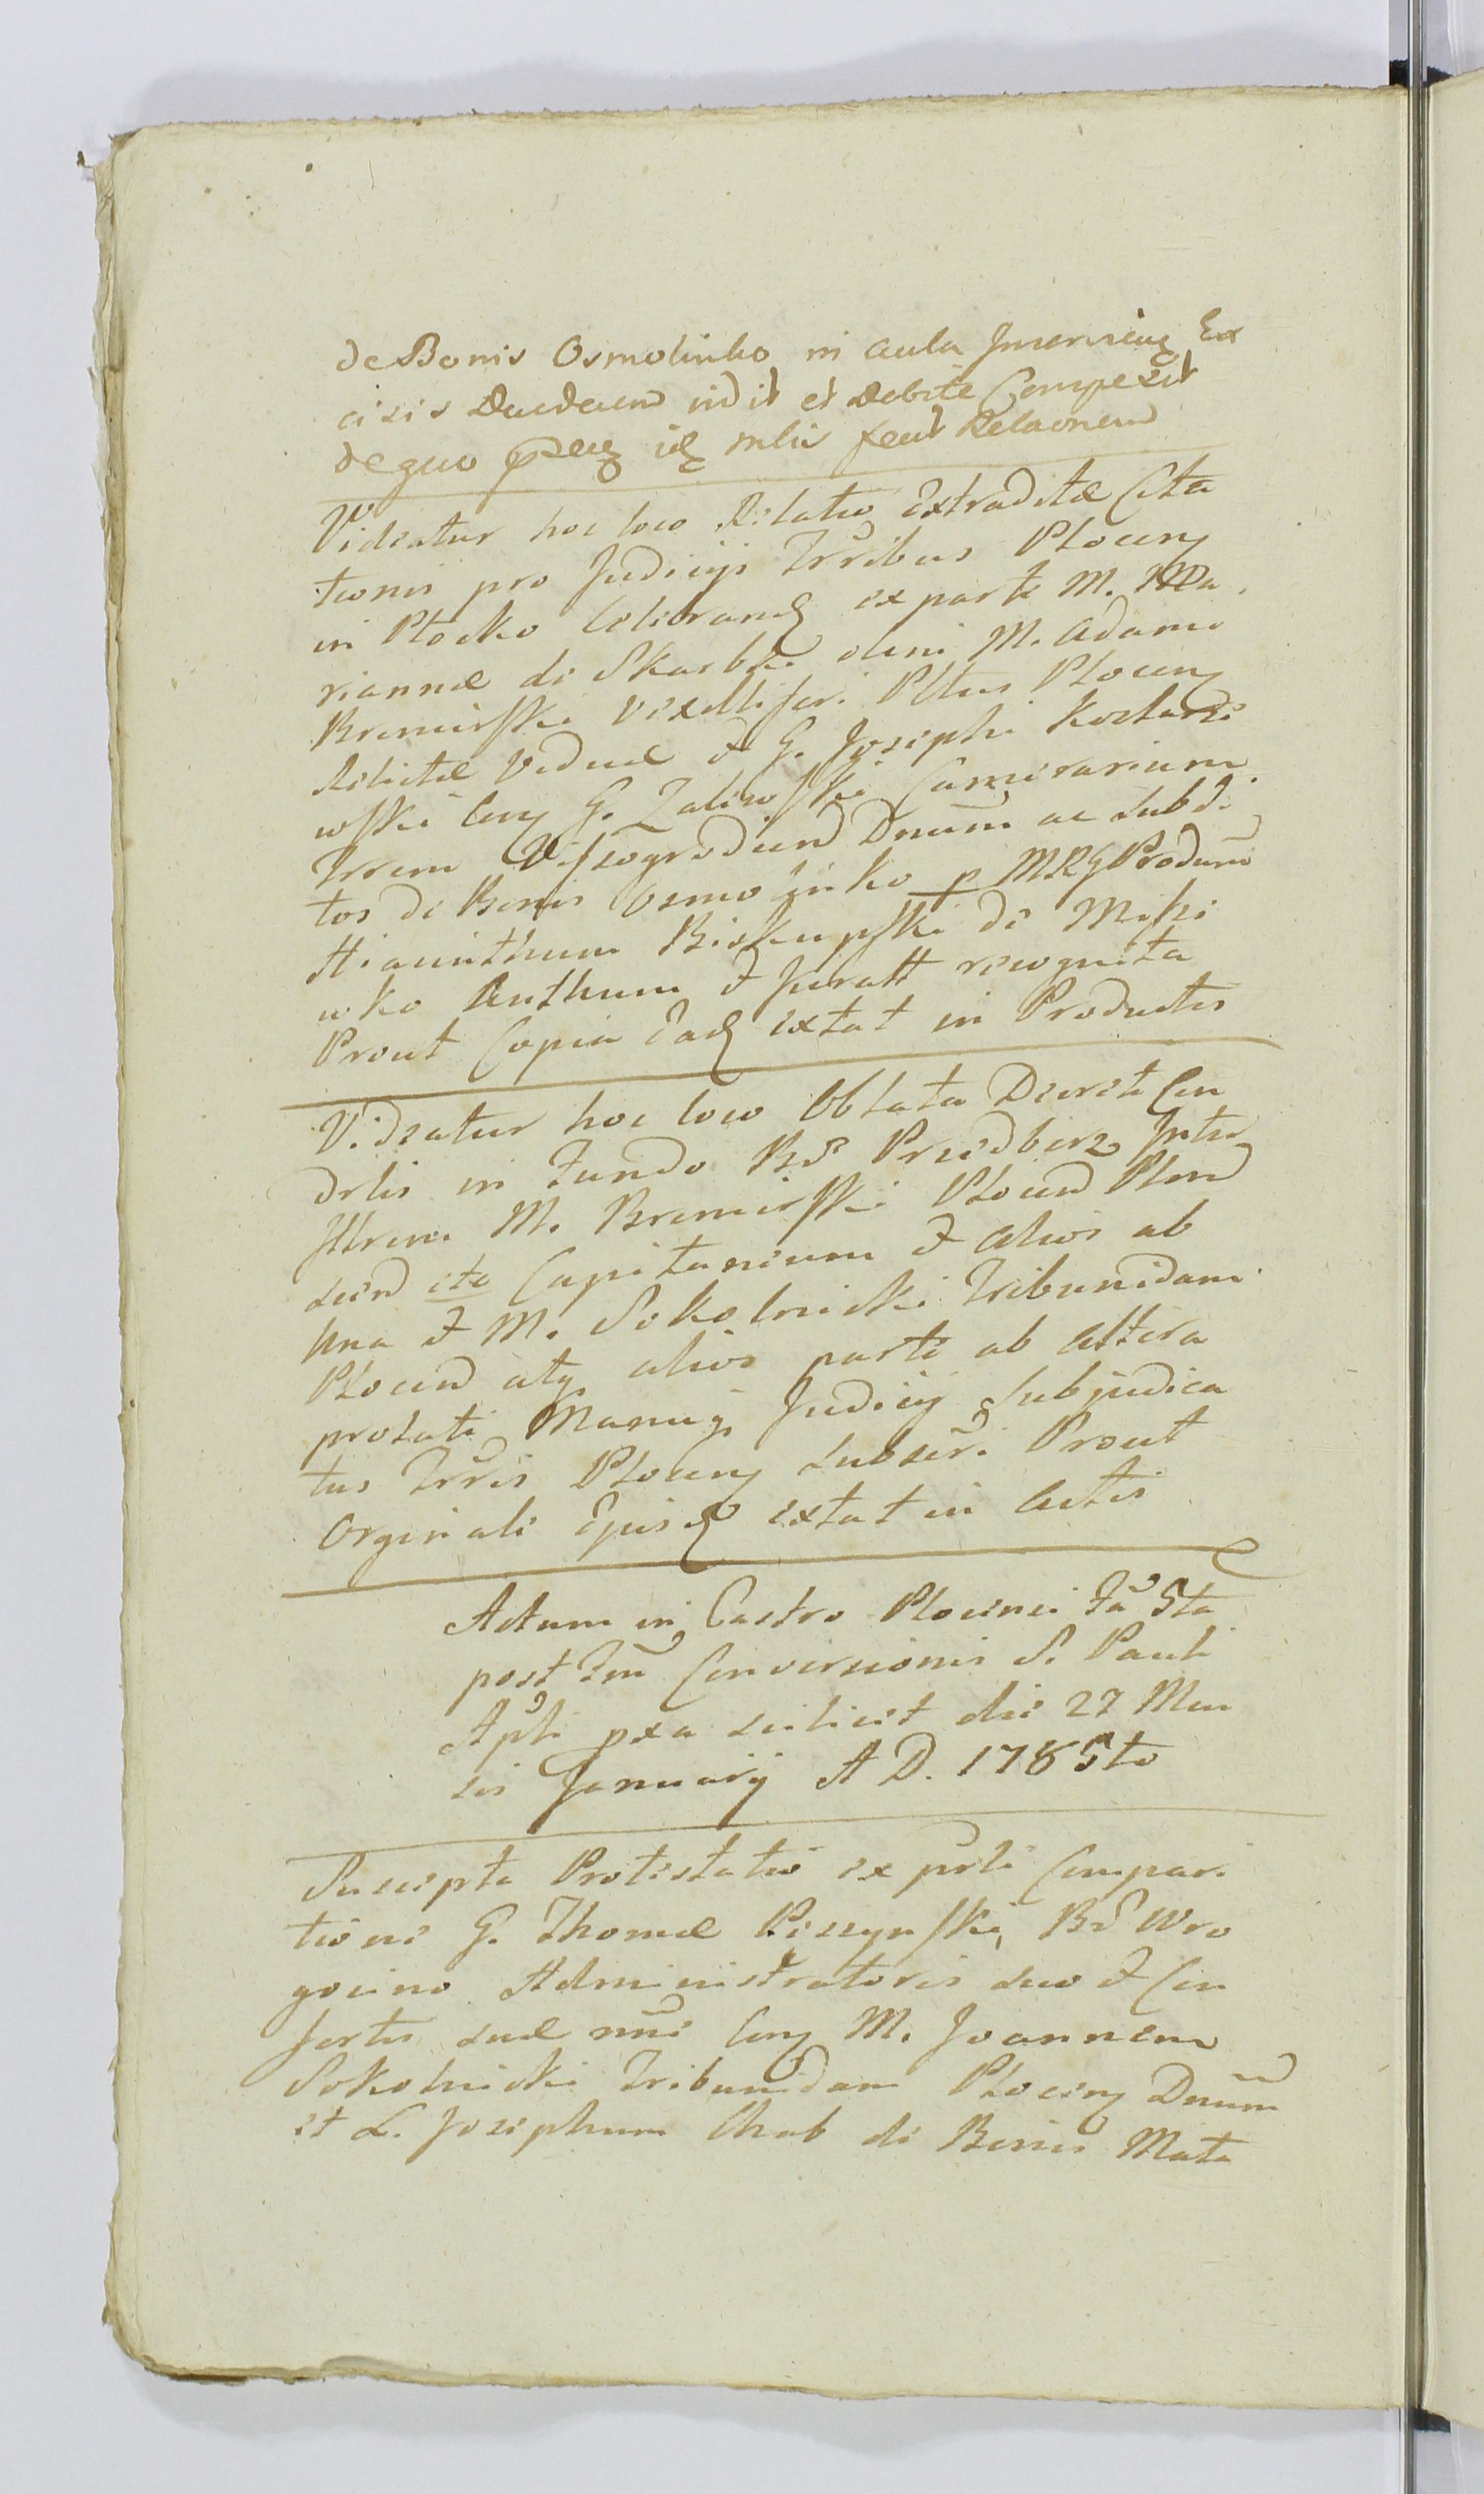 de Bonis Osmolinko in aula Inservien Ex
cisis Duedecem vidit et Debite Compexit
de quo idem mlis fecit Relaonem
Videatur hoc loco Relatio Extraditæ Cita
tionis pro Judicijs Trribus Plocen
in Płocko Celebrand ex parte M. Ma
riannæ de Skarbki olim M. Adami
Bremirski Vexilliferi Pltus Plocen
Relictæ Viduæ & G. Josephi Koclarze
wski Con G. Zalewski Camerarium
Trrem Vissogrodien Dnum ac Subdi
tos de Bonis Osmolinko p MRG Produm
Hiacinthum Biskupski de Misze
wko Authum & Juratt recognita
Prout Copia Ead extat in Productis
Videatur hoc loco Oblata Decreti Con
drlis in Fundo Bd Przedbierz Inter
Illrem M. Bremirski Plocen Plon
scien etc Capitaneum & alios ab
una & M. Sokolnicki Tribunidam
Plocen atq alios parte ab altera
prolati Manuq Judicij Subjudica
tus Trris Plocen Subscri Prout
Orginali Ejusd extat in Actis
Actum in Castro Plocensi Fa 5ta
post Fm Conversionis S. Pauli
Apli pxa scilicet die 27 Men
sis Januarij A D. 1785to
Suscepta Protestatio ex prti Compari
tione G. Thomæ Bd Wro
gocino Administratoris suo & Con
sortis suæ nne Con M. Joannem
Sokolnicki Tribunidam Plocen Dnum
et L. Josephum Chab de Bonis Mała